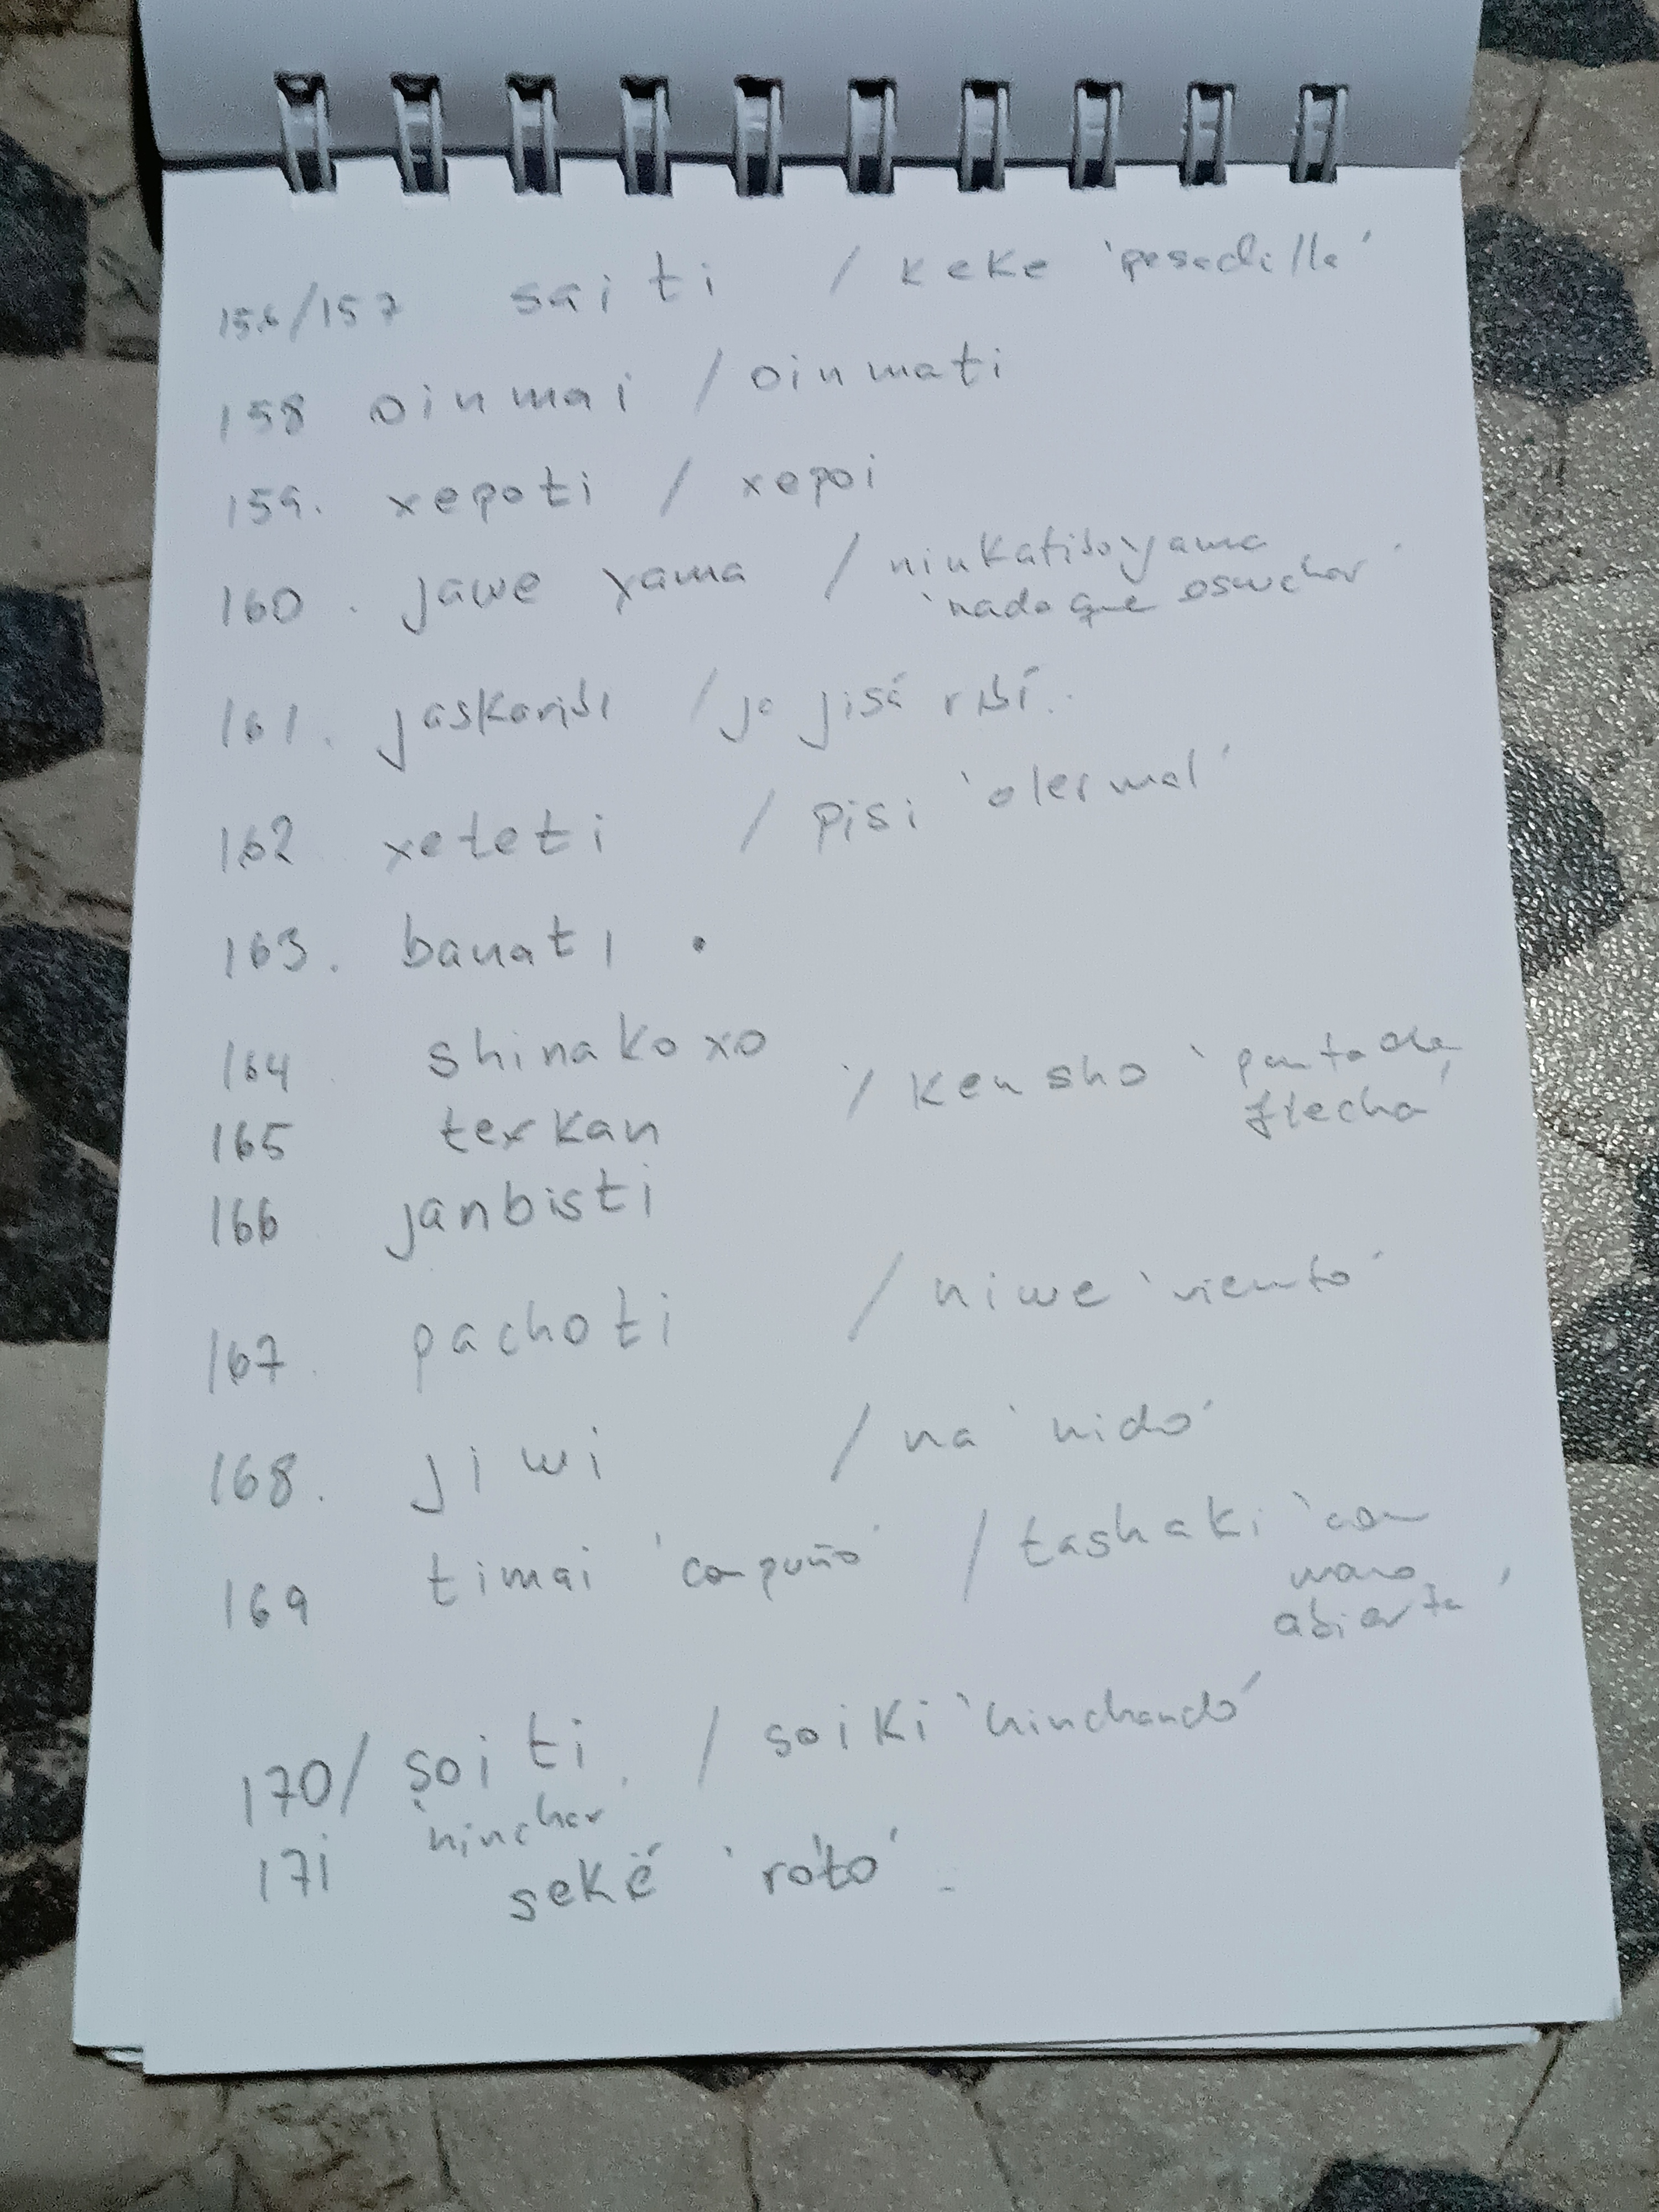 156/157 saiti / keke 'pesadilla'
158 oinmai / oinmati
159. xepoti / xepoi
160. jawe yama / ninkatiboyama
'nada que escuchar'
161. jaskaribi / ja jisá ribí.
162 xeteti / pisi 'oler mal'
163. banati .
164 shinakoxo
/ kensho 'punta de
flecha'
165 texkan
166 janbisti
167. pachoti / niwe 'viento'
168. jiwi / na 'nido'
169 timai 'con puño' / tashaki 'con
mano
abierta'
170/ soiti. / soiki 'hinchando'
'hinchar
171 sekë́ 'roto'